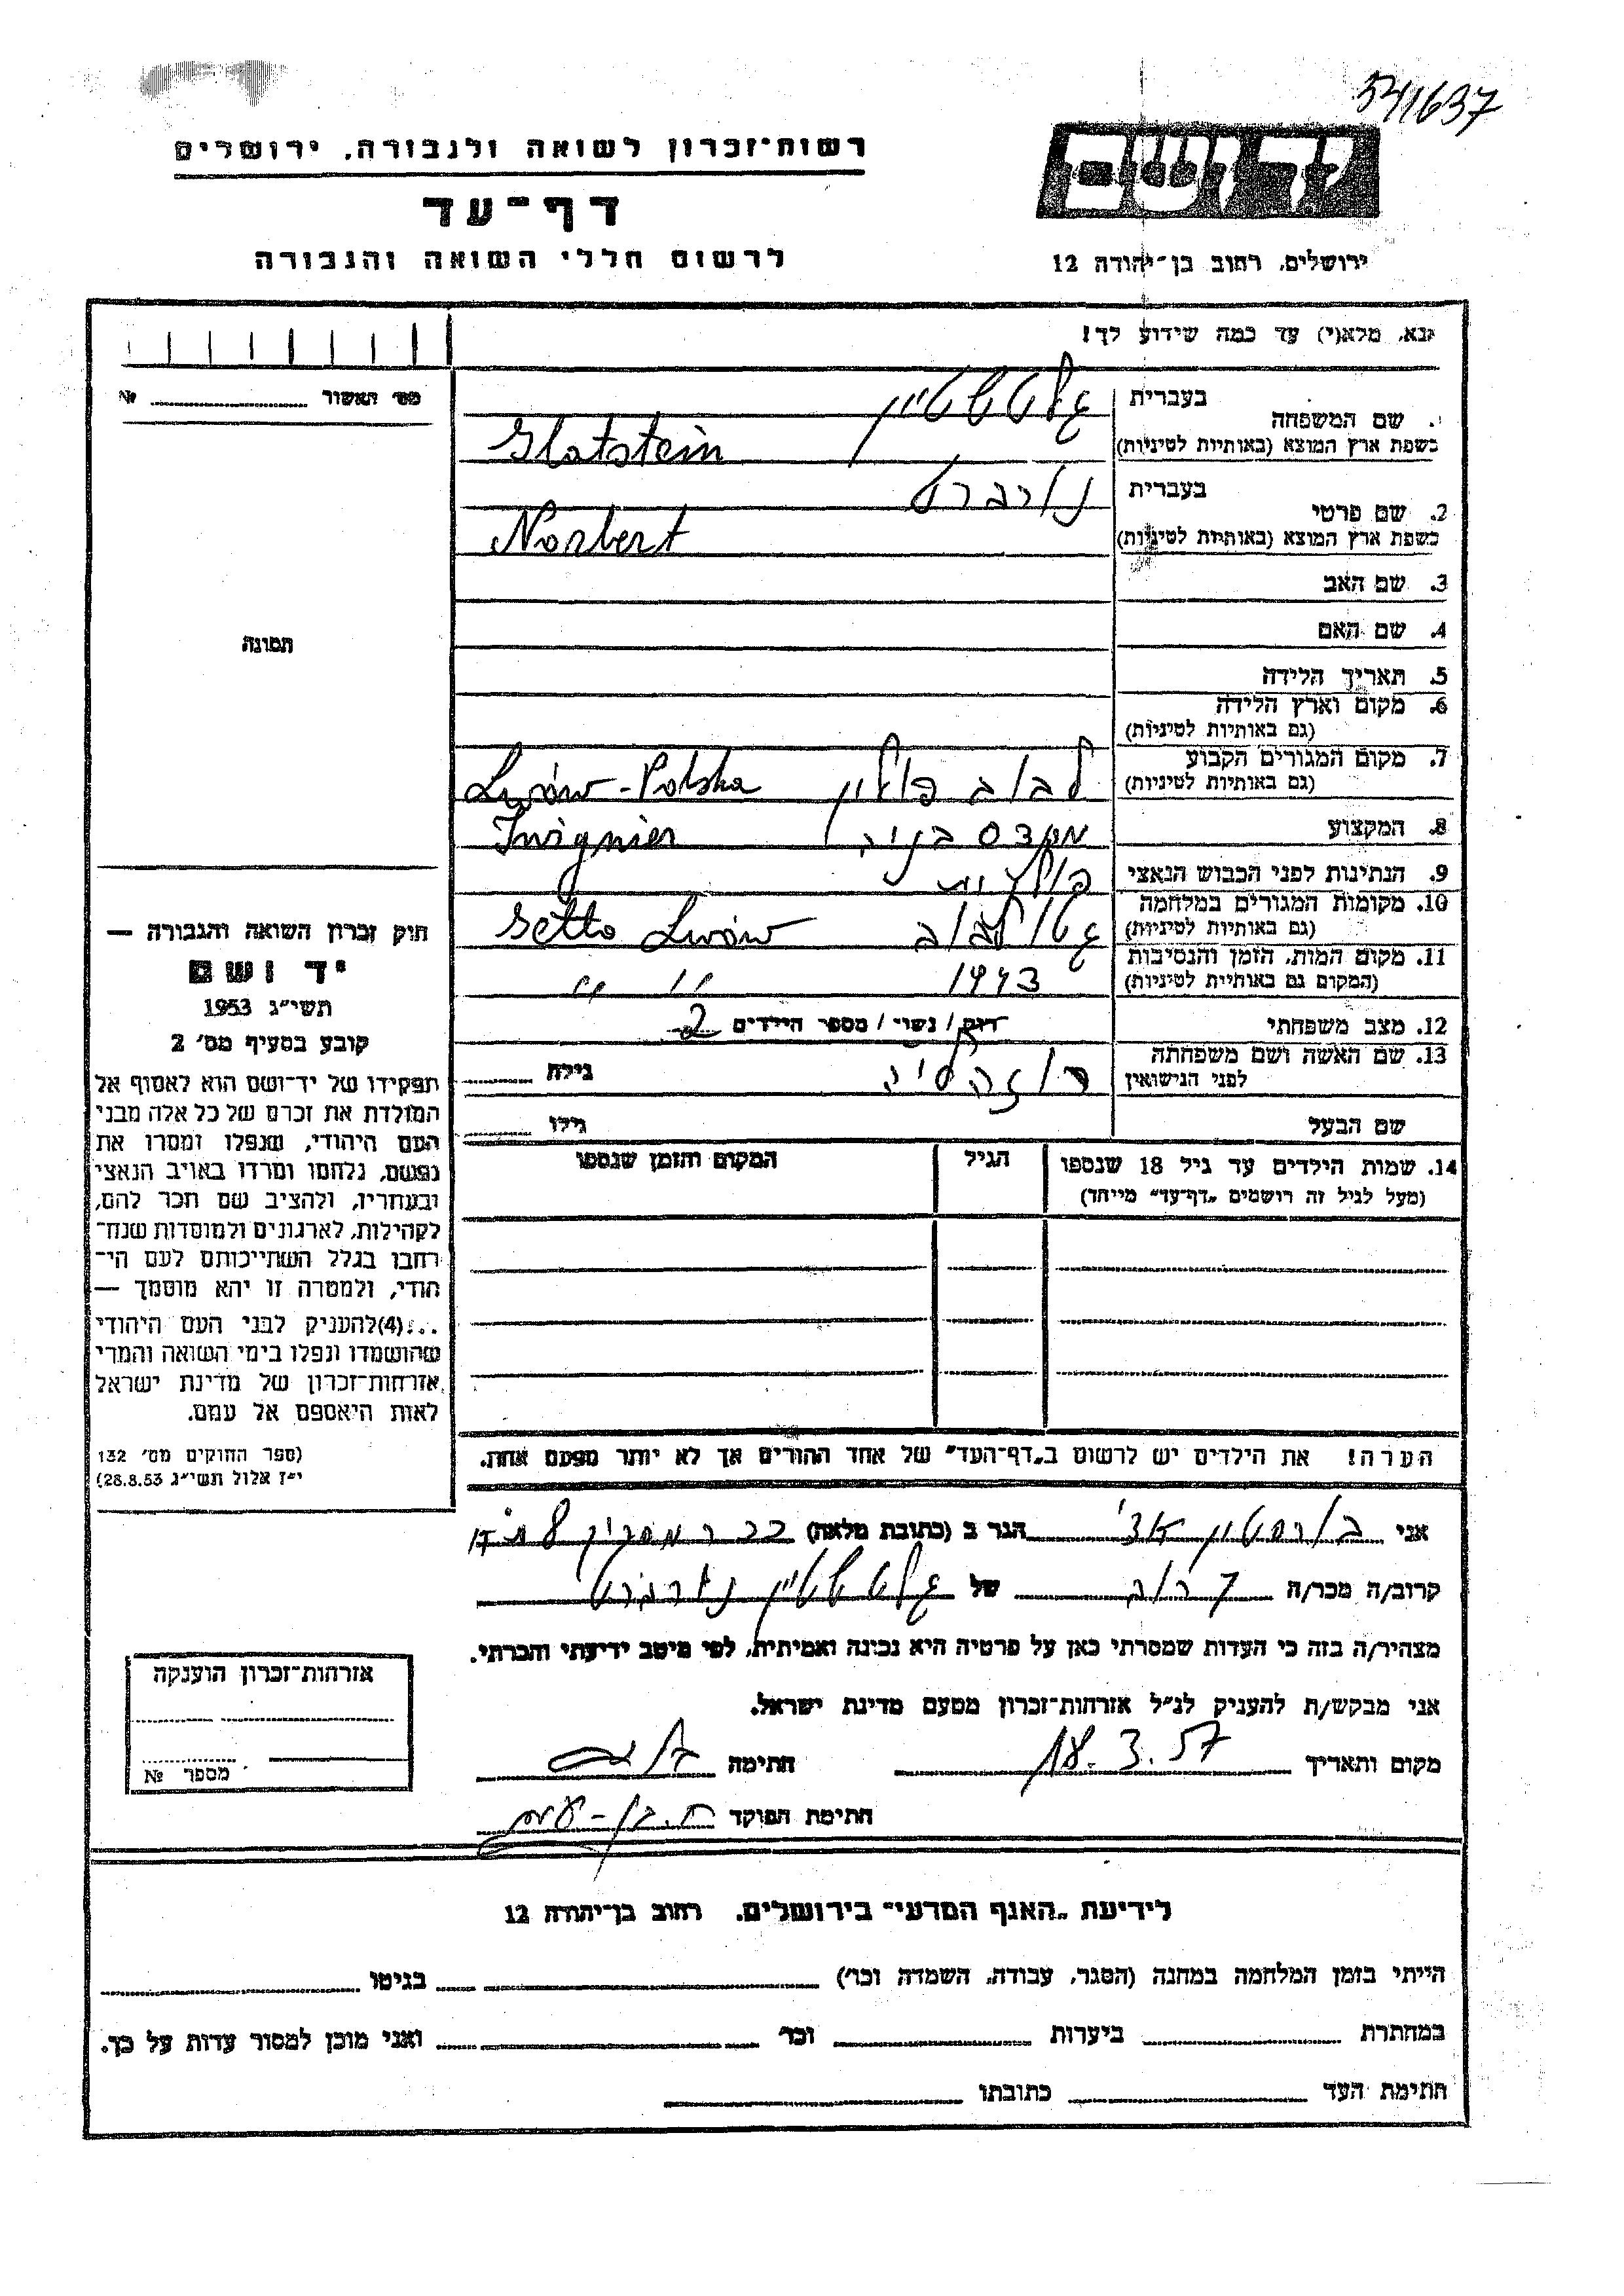 541637
רשות־זכרון לשואה ולגבורה, ירושלים
דף־עד
לרשום חללי השואה והגבורה
יד ושם
ירושלים, רחוב בן־יהודה 12
נא, מלא(י) עד כמה שידוע לך!
מס׳ תאשור № 
שם המשפחה בעברית גלטשטיין
בשפת ארץ המוצא (באותיות לטיניות) Glatstein
2. שם פרטי בעברית נורברט
בשפת ארץ המוצא (באותיות לטיניות) Norbert
3. שם האב
4. שם האם
5. תאריך הלידה
6. מקום וארץ הלידה
(גם באותיות לטיניות)
7. מקום המגורים הקבוע לבוב פולין Lwów - Polska
(גם באותיות לטיניות)
8. המקצוע מהנדס בניה Inrignier
9. הנתינות לפני הכבוש הנאצי פולנית
10. מקומות המגורים במלחמה גטו לבוב Getto Lwów
(גם באותיות לטיניות)
11. מקום המות, הזמן והנסיבות 1943 " "
(המקום גם באותיות לטיניות)
12. מצב משפחתי רווק / נשוי / מספר הילדים 2
13. שם האשה ושם משפחתה רוזהליה גילה
לפני הנישואין
שם הבעל גילו
14. שמות הילדים עד גיל 18 שנספו הגיל המקום והזמן שנספו
(מעל לגיל זה רושמים "דף־עד" מייחד)
הערה! את הילדים יש לרשום ב"דף־העד" של אחד ההורים אך לא יותר מפעם אחת.
תמונה
חוק זכרון השואה והגבורה —
יד ושם
תשי״ג 1953
קובע בסעיף מס׳ 2
תפקידו של יד־ושם הוא לאסוף אל
המולדת את זכרם של כל אלה מבני
העם היהודי, שנפלו ומסרו את
נפשם, נלחמו ומרדו באויב הנאצי
ובעוזריו, ולהציב שם וזכר להם,
לקהילות, לארגונים ולמוסדות שנח־
רבו בגלל השתייכותם לעם הי־
הודי, ולמטרה זו יהא מוסמך —
...(4) להעניק לבני העם היהודי
שהושמדו ונפלו בימי השואה והמרי
אזרחות־זכרון של מדינת ישראל
לאות היאספם אל עמם.
(ספר החוקים מס׳ 132
י״ז אלול תשי״ג 28.8.53)
אני בורשטין הגר ב (כתובת מלאה)
קרוב/ה מכר/ה קרוב של גלטשטיין נורברט
מצהיר/ה בזה כי העדות שמסרתי כאן על פרטיה היא נכונה ואמיתית, לפי מיטב ידיעתי והכרתי.
אני מבקש/ת להעניק לנ״ל אזרחות־זכרון מטעם מדינת ישראל.
מקום ותאריך 18.3.57 חתימה
חתימת הפוקד
אזרחות־זכרון הוענקה
מספר №
לידיעת "האגף המדעי" בירושלים, רחוב בן־יהודה 12
הייתי בזמן המלחמה במחנה (הסגר, עבודה, השמדה וכו׳) בגיטו
במחתרת ביערות וכו׳ ואני מוכן למסור עדות על כך.
חתימת העד כתובתו